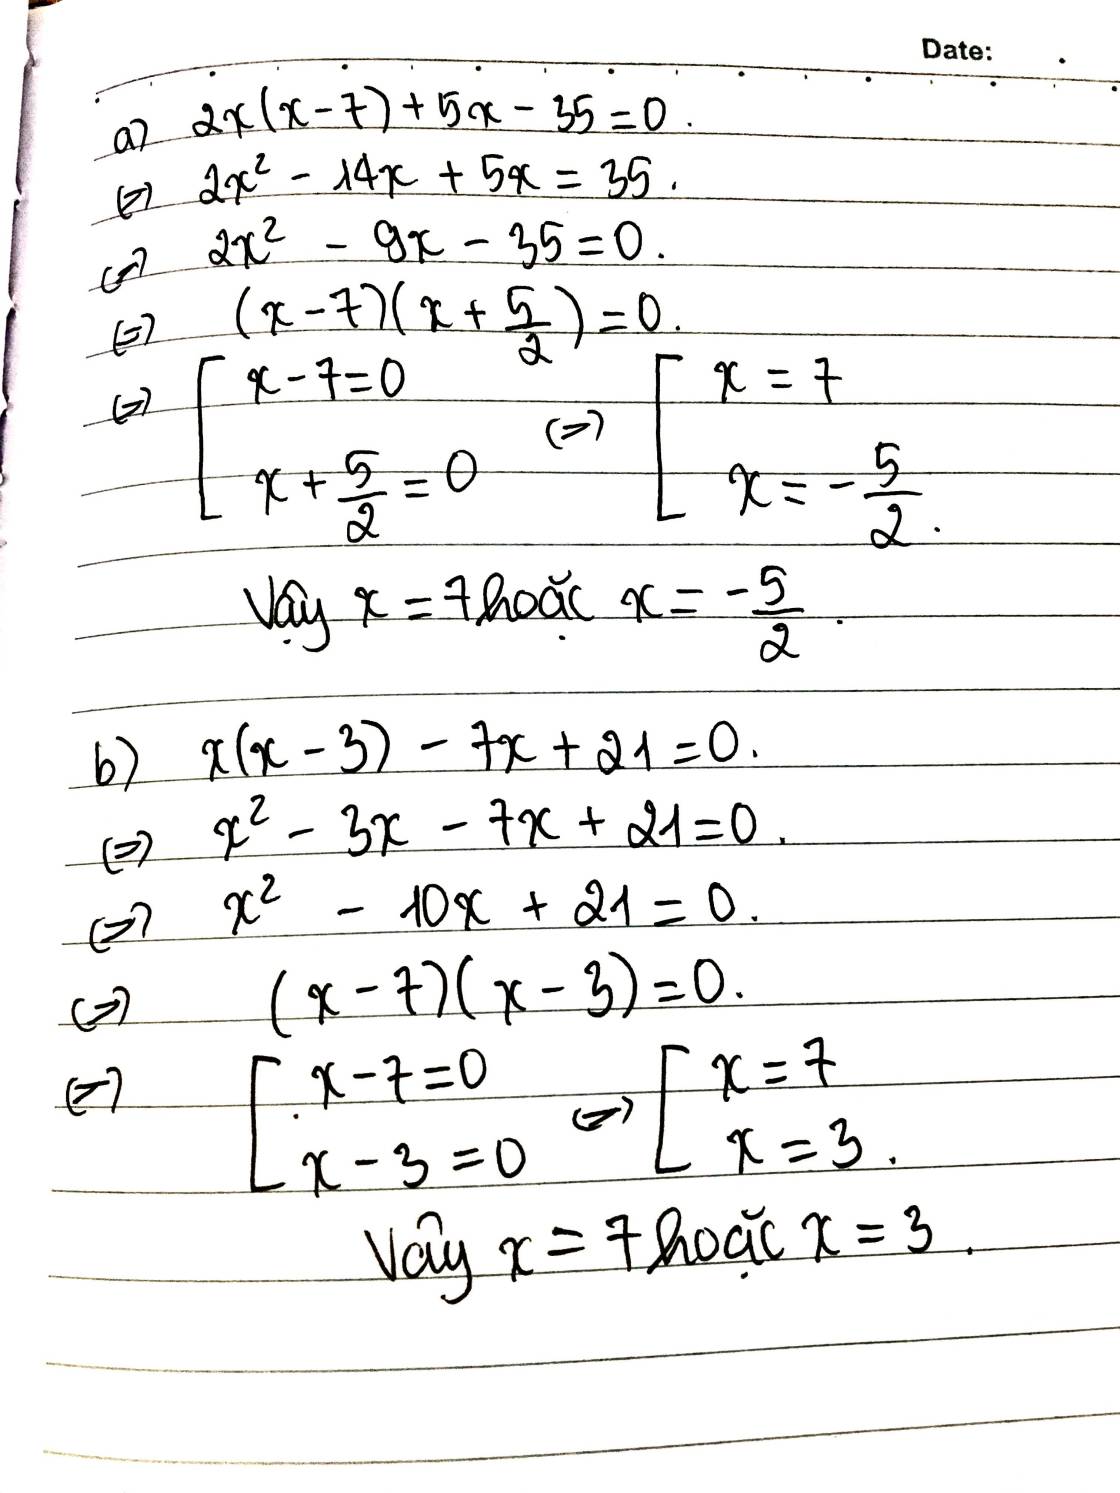 Date:
a) 2x(x-7) + 5x - 35 = 0.
(=) 2x² - 14x + 5x = 35.
(=) 2x² - 9x - 35 = 0.
(=) (x-7)(x + 5/2) = 0.
(=) [ x-7=0 (=) [ x = 7
x + 5/2 = 0 x = -5/2.
Vậy x = 7 hoặc x = -5/2.
b) x(x-3) - 7x + 21 = 0.
(=) x² - 3x - 7x + 21 = 0.
(=) x² - 10x + 21 = 0.
(=) (x-7)(x-3) = 0.
(=) [ x-7=0 (=) [ x = 7
x-3=0 x = 3.
Vây x = 7 hoặc x = 3.